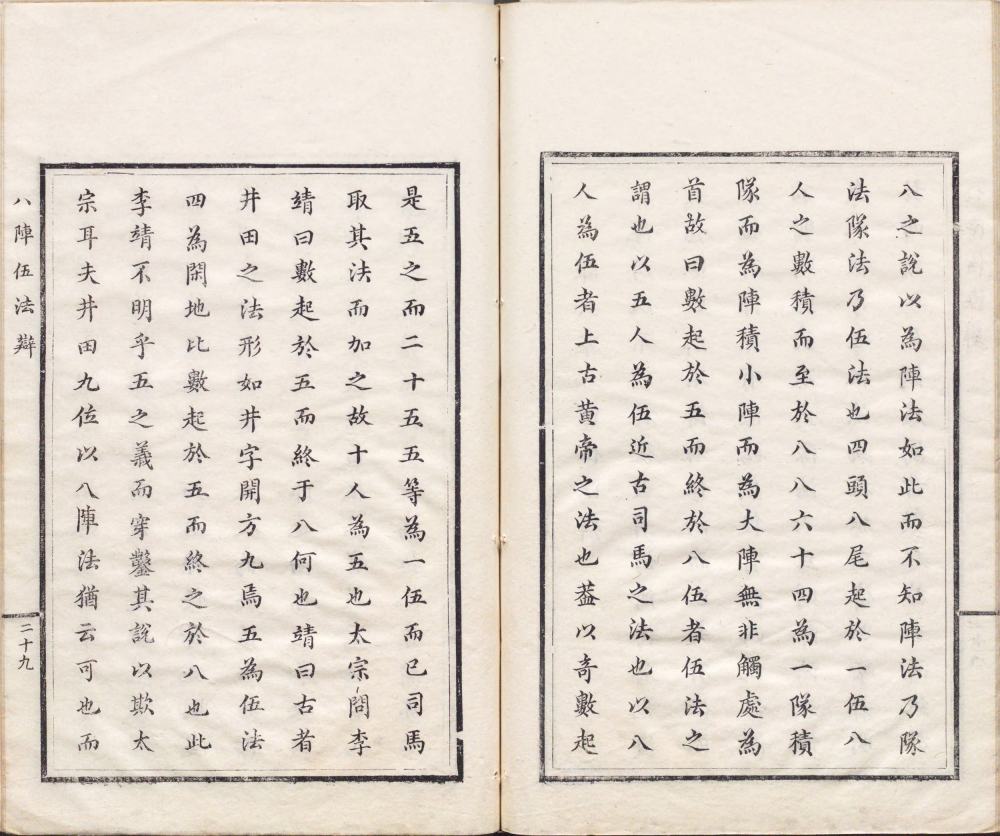 八之說以為陣法如此而不知陣法乃隊
法隊法乃伍法也四頭八尾起於一伍八
人之數積而至於八八六十四為一隊積
隊而為陣積小陣而為大陣無非觸處為
首故曰數起於五而終於八伍者伍法之
謂也以五人為伍近古司馬之法也以八
人為伍者上古黄帝之法也葢以奇數起
是五之而二十五五等為一伍而已司馬
取其法而加之故十人為五也太宗問李
靖曰數起於五而終于八何也靖曰古者
井田之法形如井字開方九焉五為伍法
四為閑地比數起於五而終之於八也此
李靖不明乎五之義而穿鑿其說以欺太
宗耳夫井田九位以八陣法猶云可也而
八陣伍法辯
二十九